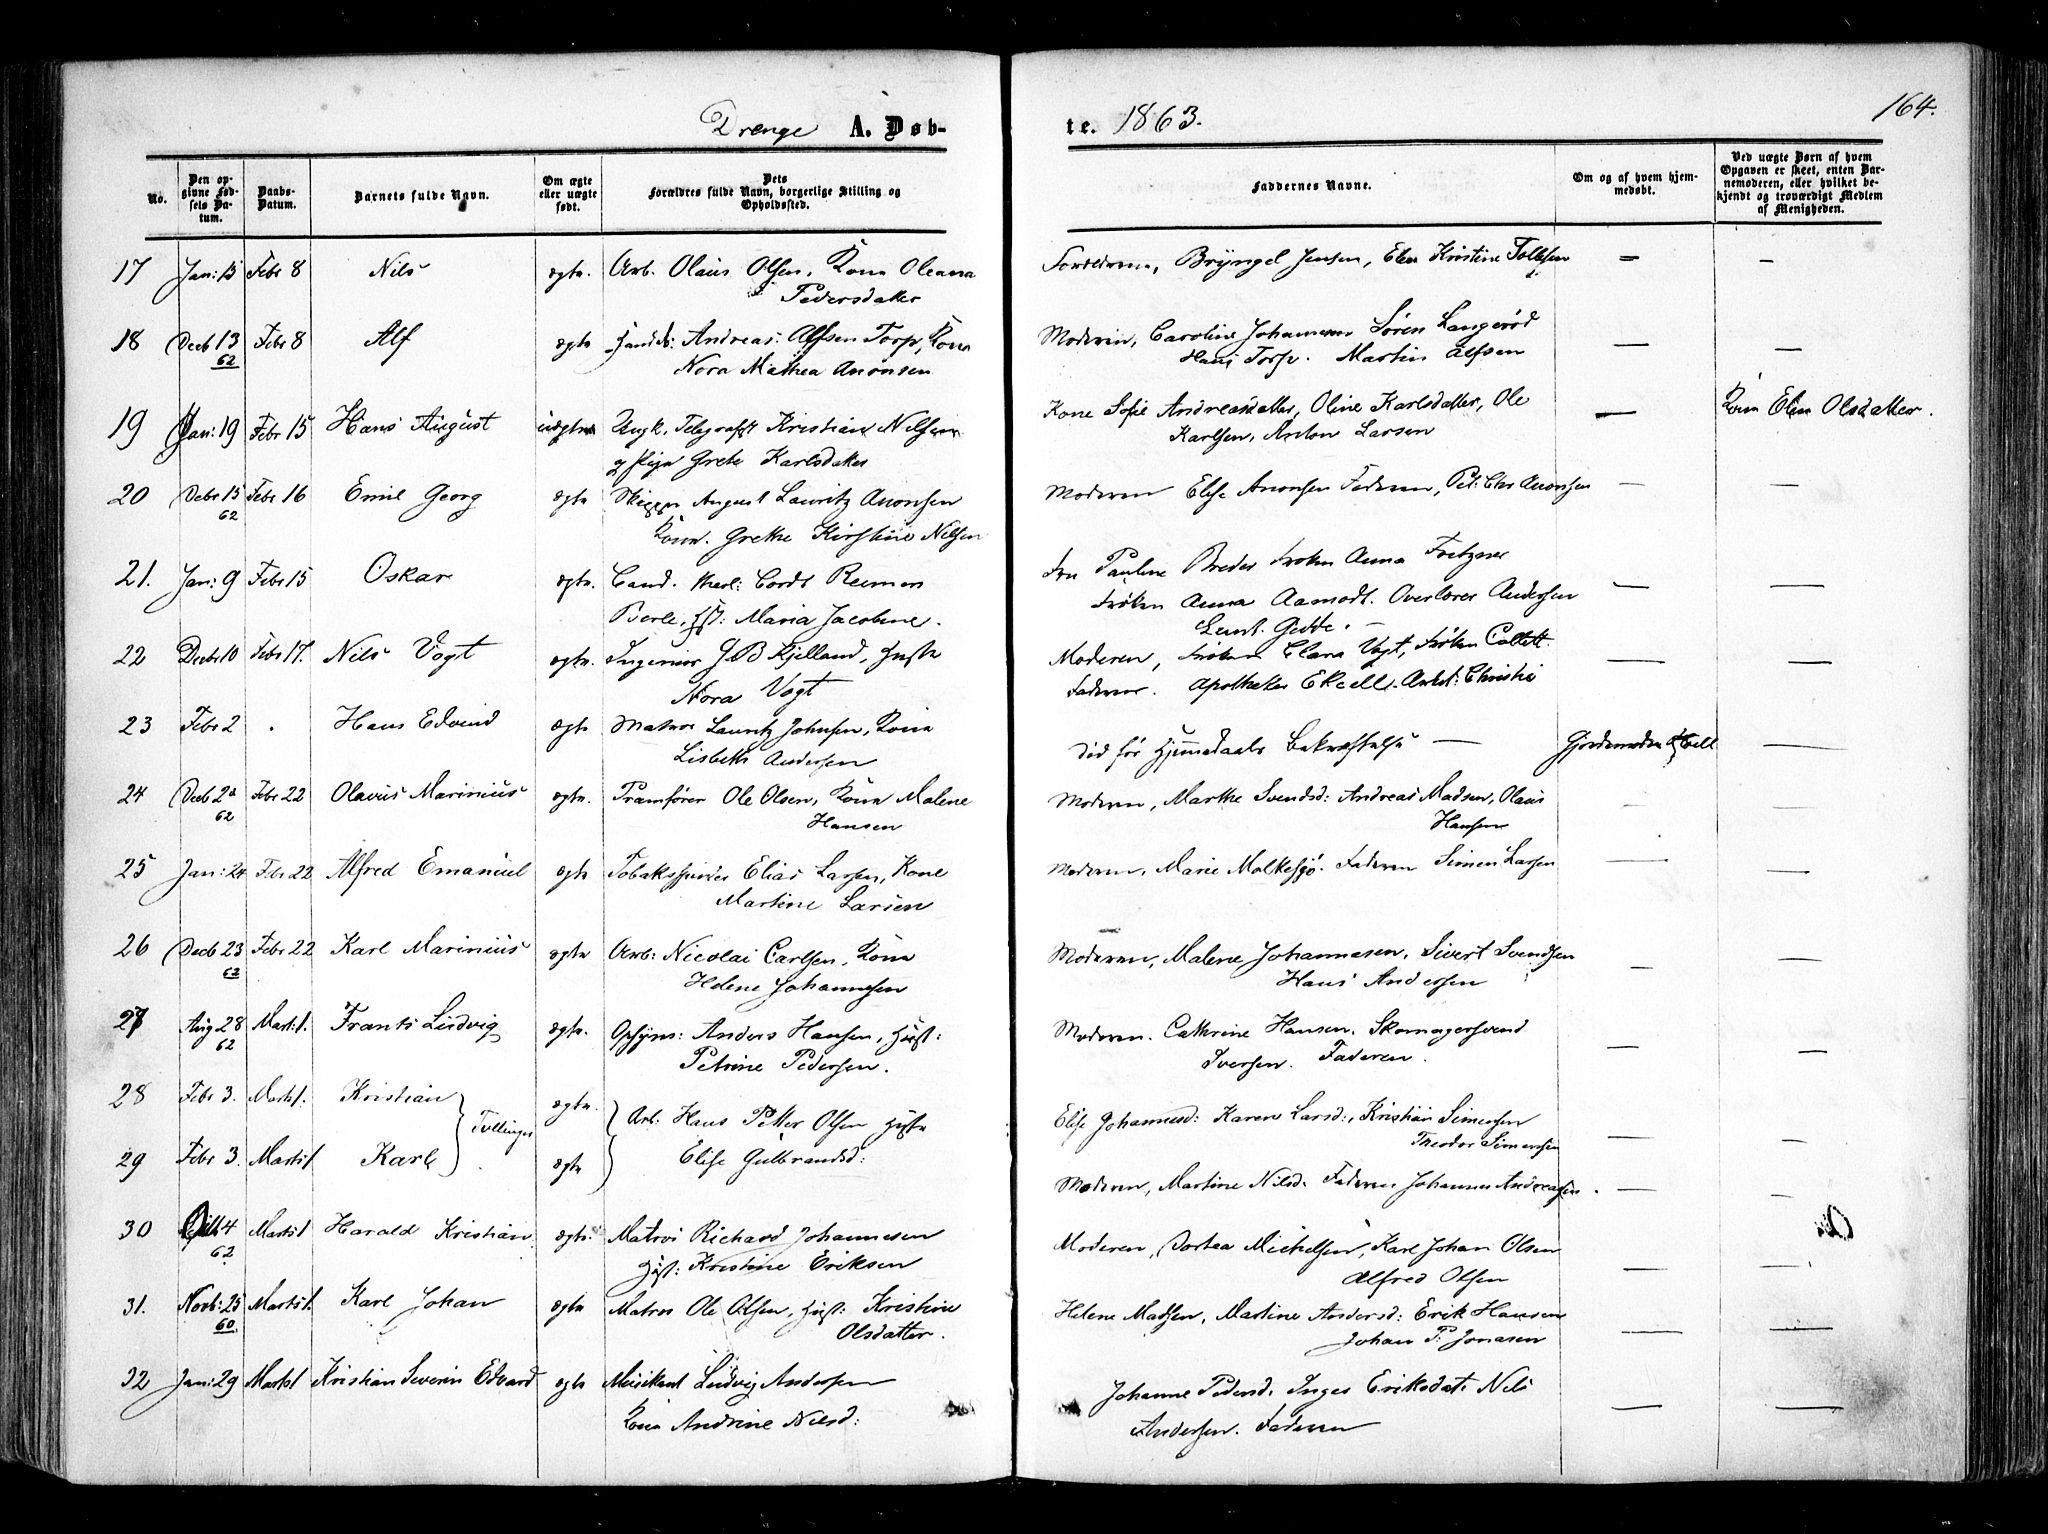 164.
Drenge A. Døb-
te. 1863.
No.
Den op-
givne Fød-
sels Da-
tum.
Daabs-
Datum.
Barnets fulde Navn.
Om ægte
eller uægte
født.
Dets
Forældres fulde Navn, borgerlige Stilling og
Opholdssted.
Faddernes Navne.
Om og af hvem hjem-
medøbt.
Ved uægte Børn af hvem
Opgaven er skeet, enten Bar-
nemoderen, eller hvilket be-
kjendt og troværdigt Medlem
af Menigheden.
17 Jan: 15 Febr 8 Nils ægte. Arb. Olaus Olsen, Kone Oleana
Pedersdatter
Forældrene, Bryngel Jensen, Elen Kristine Tollefsen — —
18 Decb 13 Febr 8 Alf ægte Handels: Andreas Alfsen Torp, Kone
62
Nora Mathea Anonsen
Moderen, Caroline Johannesen Søren Langerød
Hans Torp. Martin Alfsen — —
19 Jan: 19 Febr 15 Hans August uægte Ungk. Telegrafist Kristian Nilsen
og Pige Grete Karlsdatter
Kone Sofie Andreasdatter, Oline Karlsdatter, Ole
Karlsen, Anton Larsen — Kone Elen Olsdatter.
20 Debr 15 Febr 16 Emil Georg ægte Skipper August Lauritz Anonsen
62
Kone. Grethe Kirstine Nilsen
Moderen Elise Anonsen Faderen, Pet: Chr Anonsen — —
21. Jan: 9 Febr 15 Oskar ægte. Cand. theol: Cordt Reimers
Berle, Hst: Maria Jacobine.
Fru Pauline Breder Frøken Anna Fretzner
Frøken Anna Aamodt. Overlærer Andersen
Leut. Gedde. — — —
22 Decbr 10 Febr 17. Nils Vogt ægte. Ingeniør J B Kjelland, Hustr
Nora Vogt
Moderen, Frøken Clara Vogt, Frøken Collett
Faderen. Apotheker — Christie — —
23 Febr 2 . Hans Edvind ægte Matros Lauritz Johnsen, Kone
Lisbeth Andersen
Død før Hjemmedaabs Bekræftelse — Gjordemoder —
24 Decb 22 Febr 22 Olavus Marinius ægte. Pramfører Ole Olsen, Kone Malene
62
Hansen
Moderen, Marthe Svendsd: Andreas Madsen, Olaus
Hansen — —
25 Jan: 24 Febr 22 Alfred Emanuel ægte Tobaksspinder Elias Larsen, Kone
Martine Larsen
Moderen, Marie Molkesjø. Faderen Simen Larsen — —
26 Decb 23 Febr 22 Karl Marinius ægte Arb: Nicolai Carlsen, Kone
62
Helene Johannesen
Moderen, Malene Johannesen, Sivert Svendsen
Hans Andersen — —
27 Aug 28 Marts 1. Frants Ludvig ægte. Opsyns: Anders Hansen, Hust:
62
Petrine Pedersen.
Moderen. Cathrine Hansen. Skomagersvend
Iversen. Faderen. — —
28 Febr 3. Marts 1. Kristian ægte. Arb: Hans Petter Olsen Hustr
Tvillinger
Elise Johannesd: Karen Larsd:, Kristian Simensen
Theodor Simensen — —
29 Febr 3. Marts 1 Karl ægte Elise Gulbrandsd:
Moderen, Martine Nilsd. Faderen Johannes Andreasen. — —
30 4 Marts 1 Harald Kristian ægte. Matros Richard Johannesen
62
Hust: Kristine Eriksen
Moderen, Dortea Michelsen, Karl Johan Olsen
Alfred Olsen — —
31. Novb: 25 Marts 1. Karl Johan ægte Matros Ole Olsen, Hust: Kristine
60
Olsdatter.
Helene Madsen, Martine Andersd: Erik Hansen
Johan P. Jonasen — —
32 Jan: 29 Marts 1 Kristian Severin Edvard ægte Musikant Ludvig Andersen
Kone Andrine Nilsd:
Johanne Pedersd. Inger Eriksdat. Nils
Andersen. Faderen — —